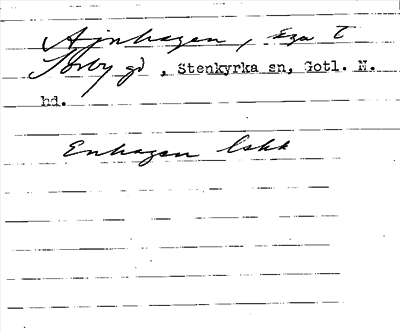 Ajnhagen, Äga t
Sorby gd, Stenkyrka sn, Gotl. N.
hd.
Enhagen Eskk